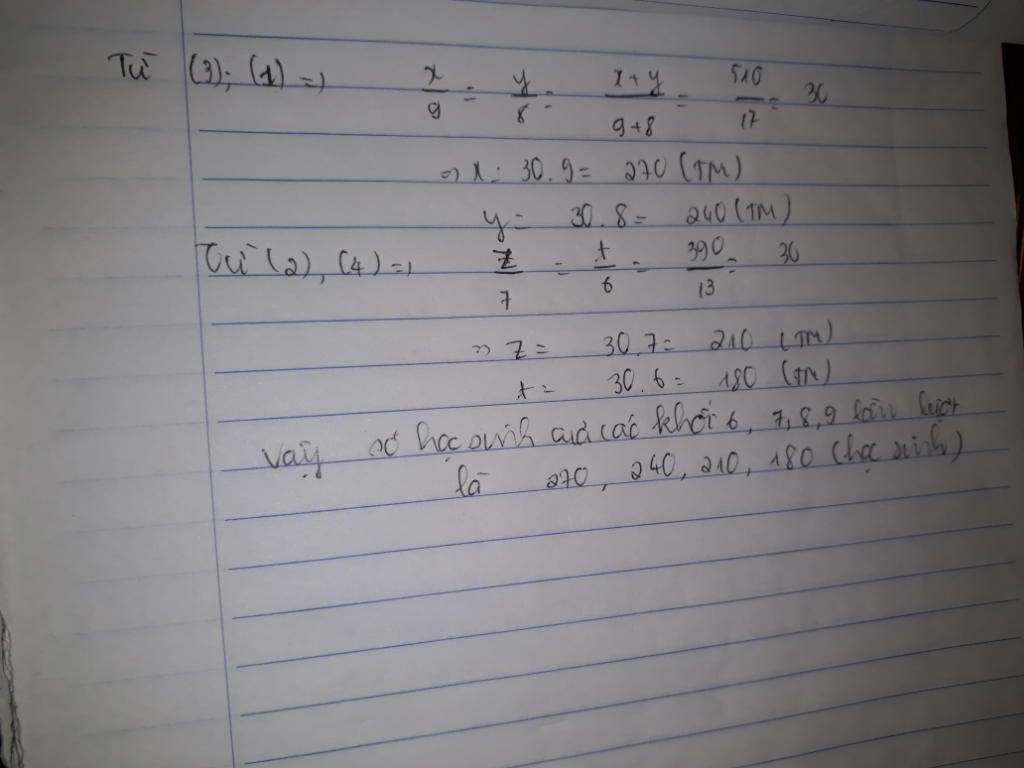 Từ (3); (1) => x/9 = y/8 = x+y/9+8 = 510/17 = 30
=> x = 30.9 = 270 (TM)
y = 30.8 = 240 (TM)
Từ (2), (4) => z/7 = t/6 = 390/13 = 30
=> z = 30.7 = 210 (TM)
t = 30.6 = 180 (TM)
Vậy số học sinh của các khối 6, 7, 8, 9 lần lượt
là 270, 240, 210, 180 (học sinh)